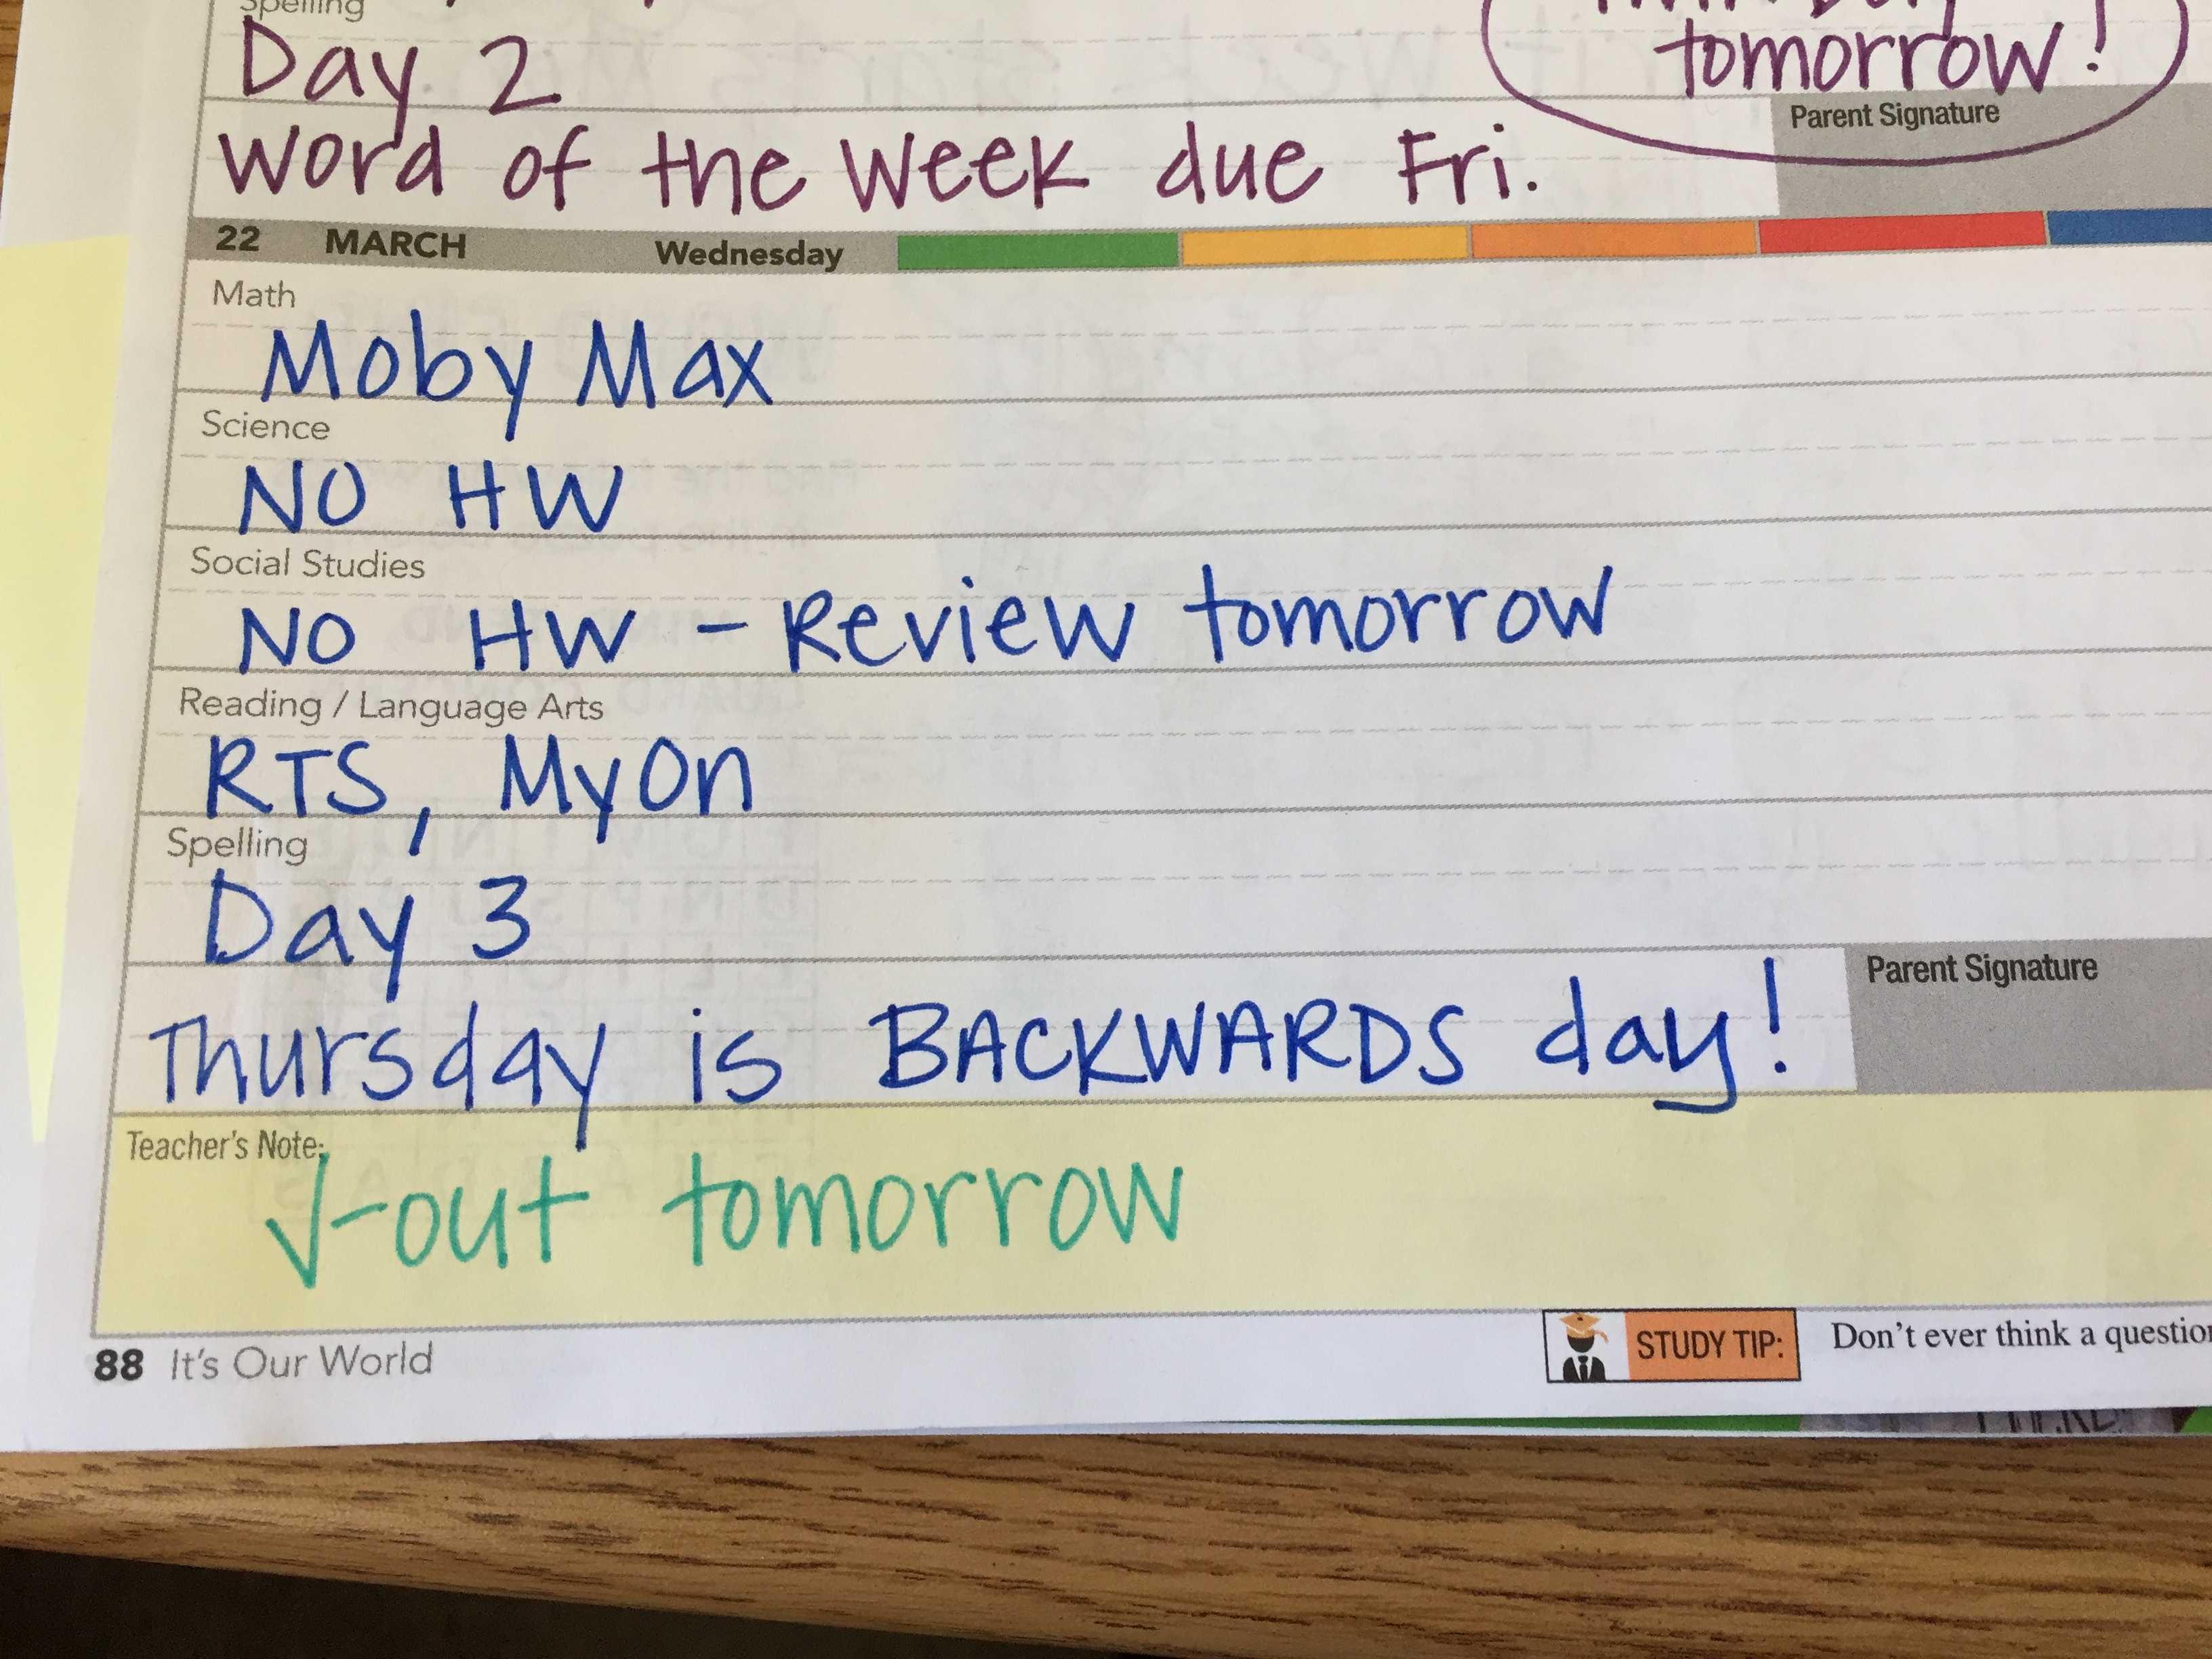 Spelling
tomorrow!
Day 2
Parent Signature
Word of the Week due Fri.
22 MARCH Wednesday
Math
Moby Max
Science
NO HW
Social Studies
NO HW - Review tomorrow
Reading / Language Arts
RTS, MyOn
Spelling
Day 3
Parent Signature
Thursday is BACKWARDS day!
Teacher's Note:
√-out tomorrow
88 It's Our World
STUDY TIP: Don't ever think a question